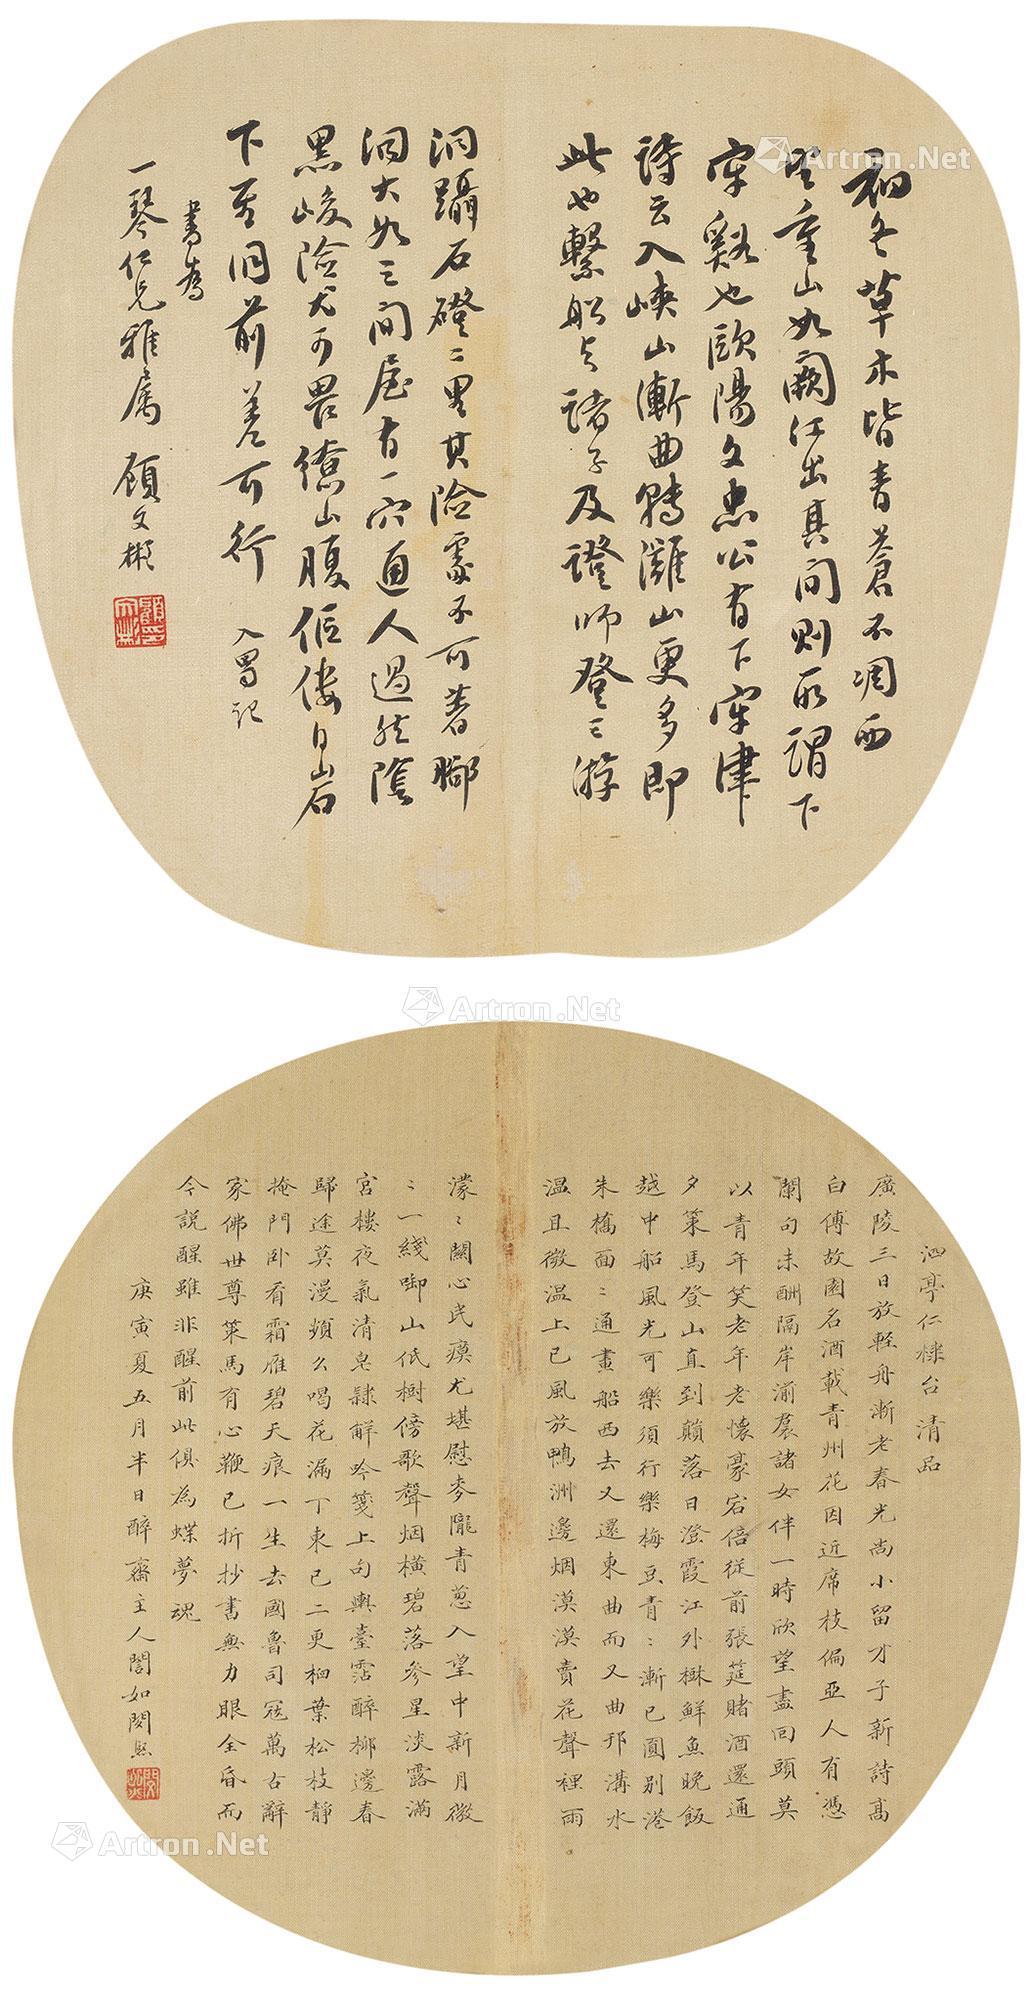 初冬草木皆青蒼不凋西
望重山如闕江出其間則所謂下
牢谿也歐陽文忠公有下牢津
詩云入峽山漸曲轉灘山更多即
此也繫船與諸子及證師登三游
洞躡石磴二里其險處不可著腳
洞大如三間屋有一穴通人過然陰
黑峻險尤可畏繚山腹傴僂自巖石
下至洞前差可行 入蜀記
書為
一琴仁兄雅屬 顧文彬
泗亭仁棣台清品
廣陵三日放輕舟漸老春光尚小留才子新詩高
白傅故園名酒載青州花因近席枝偏亞人有憑
闌句未酬隔岸湔裠諸女伴一時欣望盡回頭莫
以青年笑老年老懷豪宕倍從前張筵賭酒還通
夕策馬登山直到顛落日澄霞江外楙鮮魚晚飯
越中船風光可樂須行樂梅豆青〻漸已圓別港
朱橋面〻通畫船西去又還東曲而又曲邗溝水
溫且微溫上巳風放鴨洲邊烟漠漠賣花聲裡雨
濛〻關心民瘼尤堪慰麥隴青葱入望中新月微
〻一綫啣山低樹傍歌聲烟橫碧落參星淡露滿
宮樓夜氣清皂隸解吟箋上句輿臺霑醉柳邊春
歸途莫漫頻么喝花漏丁東已二更桕葉松枝靜
掩門臥看霜雁碧天痕一生去國魯司寇萬古辭
家佛世尊策馬有心鞭已折抄書無力眼全昏而
今說醒雖非醒前此俱為蝶夢魂
庚寅夏五月半日醉齋主人閻如閔
Artron.Net
Artron.Net
Artron.Net